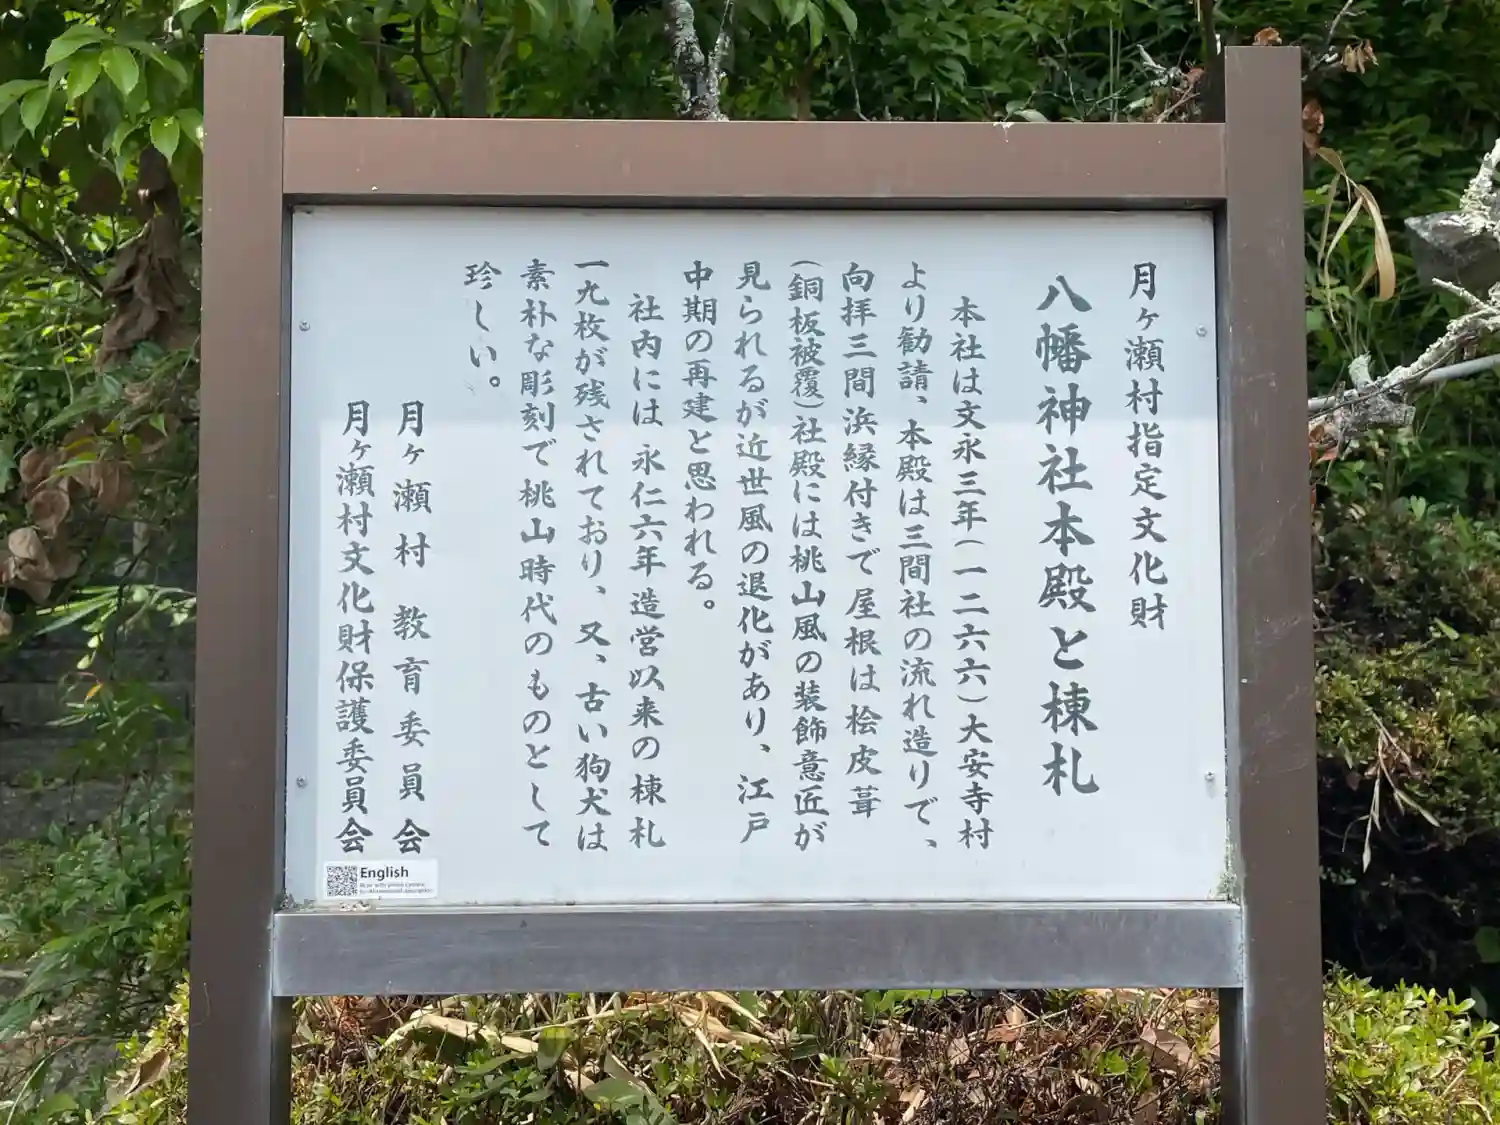 月ヶ瀬村指定文化財
八幡神社本殿と棟札
本社は文永三年(一二六六)大安寺村
より勧請、本殿は三間社の流れ造りで、
向拝三間浜縁付きで屋根は桧皮葺
(銅板被覆)社殿には桃山風の装飾意匠が
見られるが近世風の退化があり、江戸
中期の再建と思われる。
社内には永仁六年造営以来の棟札
一九枚が残されており、又、古い狗犬は
素朴な彫刻で桃山時代のものとして
珍しい。
月ヶ瀬村 教育委員会
月ヶ瀬村文化財保護委員会
English